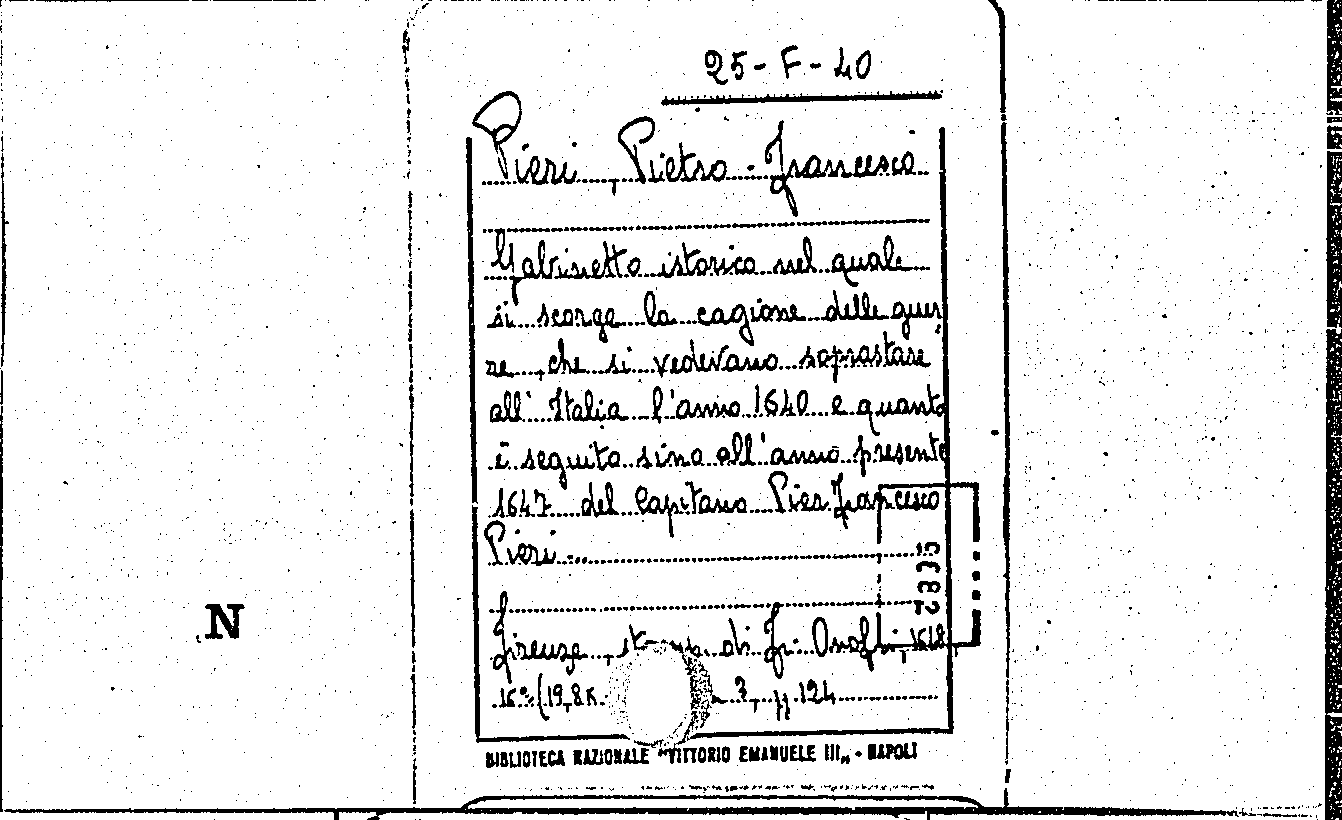 25-F-40
Pieri, Pietro-Francesco
Gabinetto istorico nel quale
si scorge la cagione delle guer
re, che si vedevano soprastare
all'Italia l'anno 1640 e quanto
è seguito sino all'anno presente
1647 del Capitano Pier Francesco
Pieri...
Firenze, di Fr. Onofri, 1648
16° (19,8x 3, pp. 124
BIBLIOTECA NAZIONALE "VITTORIO EMANUELE III„ - NAPOLI
N